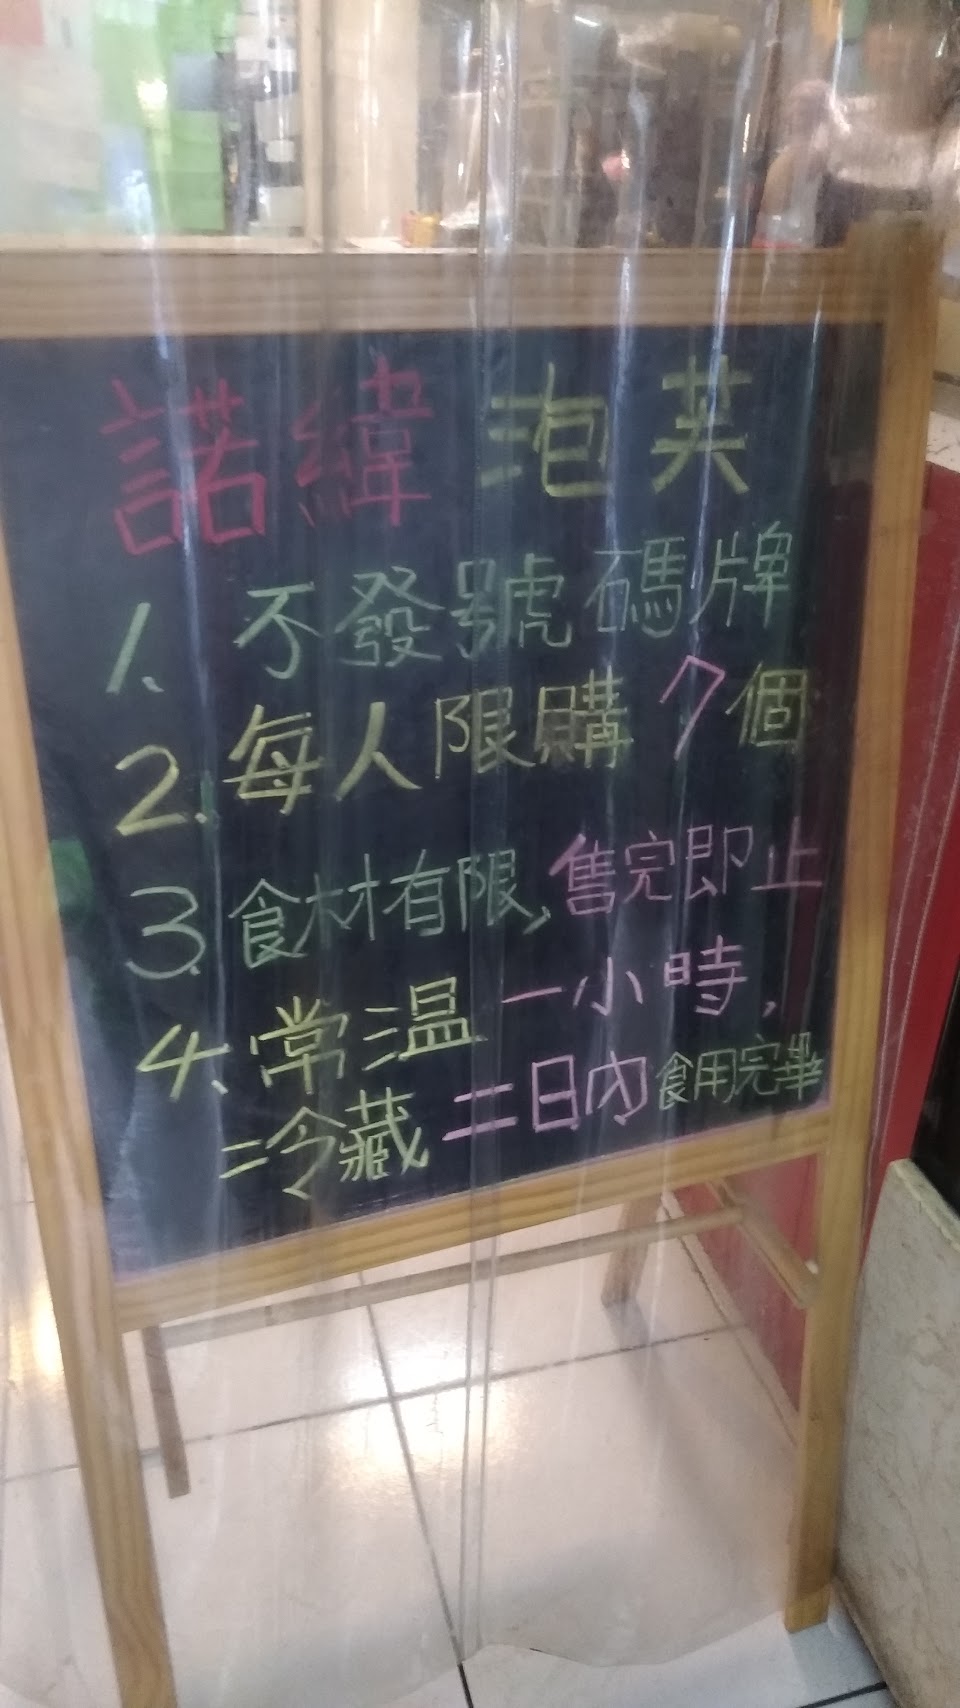 諾緯泡芙
1. 不發號碼牌
2. 每人限購7個
3. 食材有限,售完即止
4. 常温一小時,
=冷藏二日內食用完畢